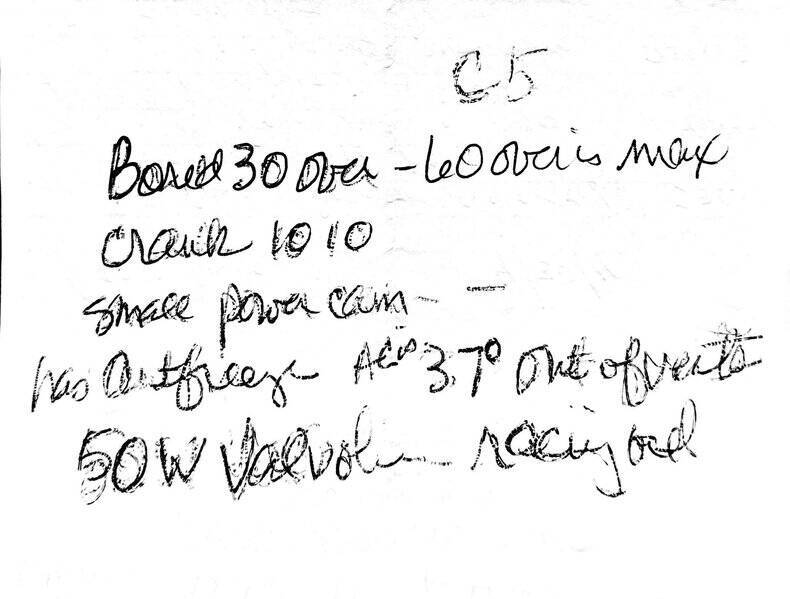 C5
Bored 30 over - 60 over is max
Crank 10 10
small power cam - -
has Antifreeze AC is 37° out of vents
50W Valvoline racing oil